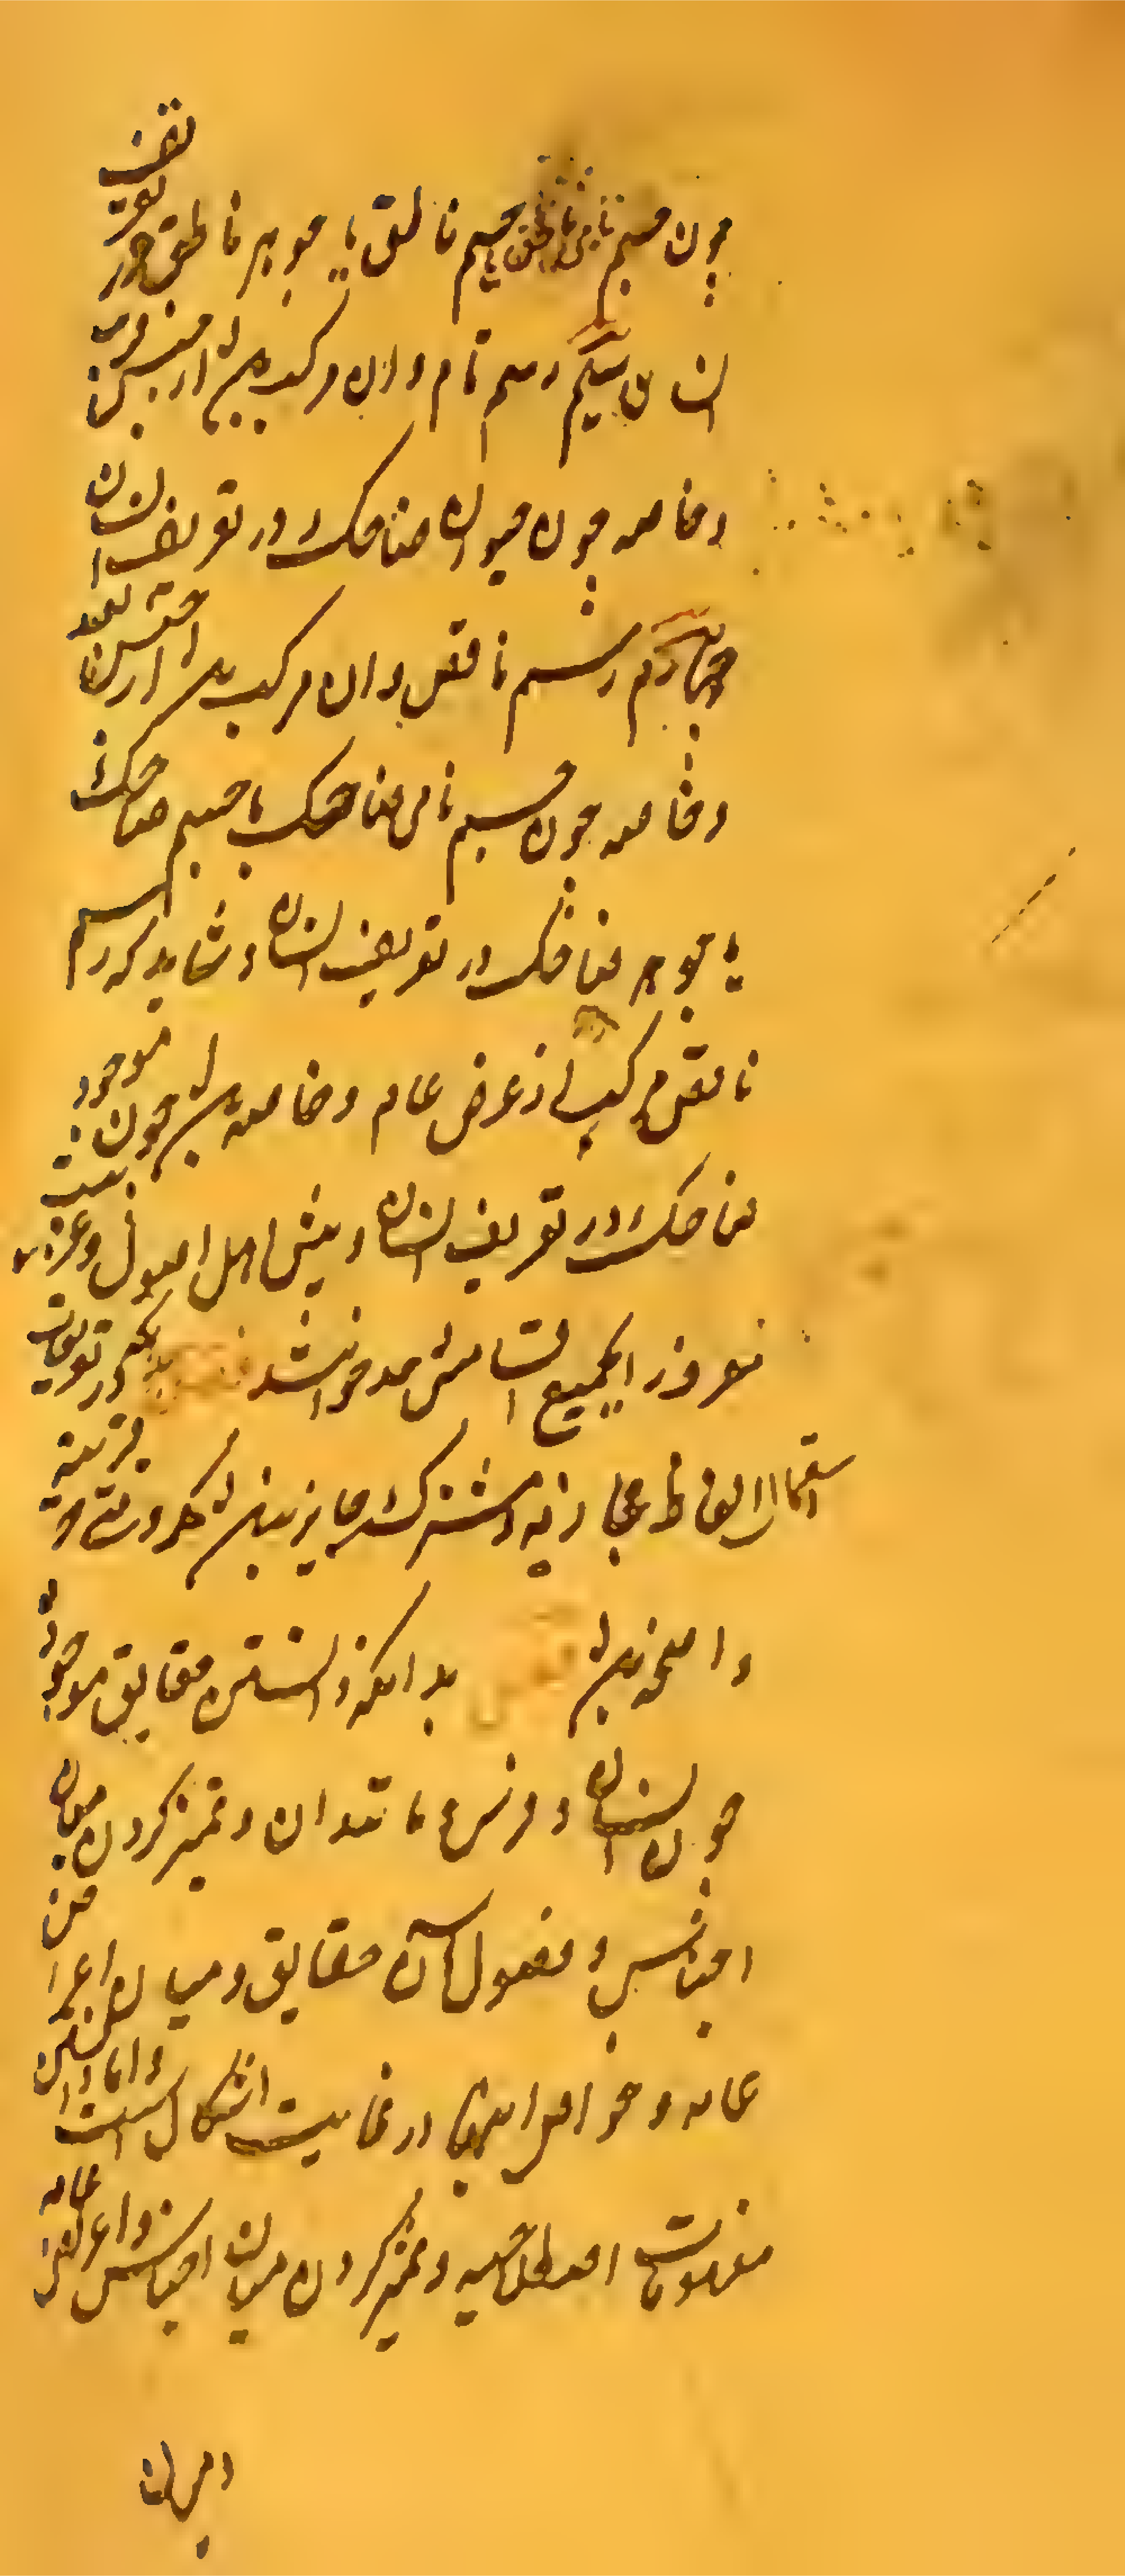 چون جسم نامی ناطق یا جسم ناطق یا جوهر ناطق در تعریف
انسان سیم رسم تام و ان مرکب باشد از جنس قریب
و خاصه چون حیوان ضاحک در تعریف انسان
چهارم رسم ناقص و ان مرکب باشد از جنس بعید
و خاصه چون جسم نامی ضاحک یا جسم ضاحک
یا جوهر ضاحک در تعریف انسان و شاید که رسم
ناقص مرکب از عرض عام و خاصه باشد چون موجود
ضاحک در تعریف انسان و پیش اهل اصول و عربیت
معرف را جمیع اقسامش حد خوانند فصل بدانکه در تعریفات
استعمال الفاظ مجازیه و مشترکه جایز نباشد مگر وقتی که قرینه
واضحه باشد فصل بدانکه دانستن حقایق موجوده
چون انسان و فرس و مانند ان و تمیز کردن میان
اجناس و فصول آن حقایق و میان اعراض
عامه و خواص اینها در غایت اشکال است و اما دانستن
مفهومات اصطلاحیه و تمیز کردن میان اجناس و اعراض عامه
و میان